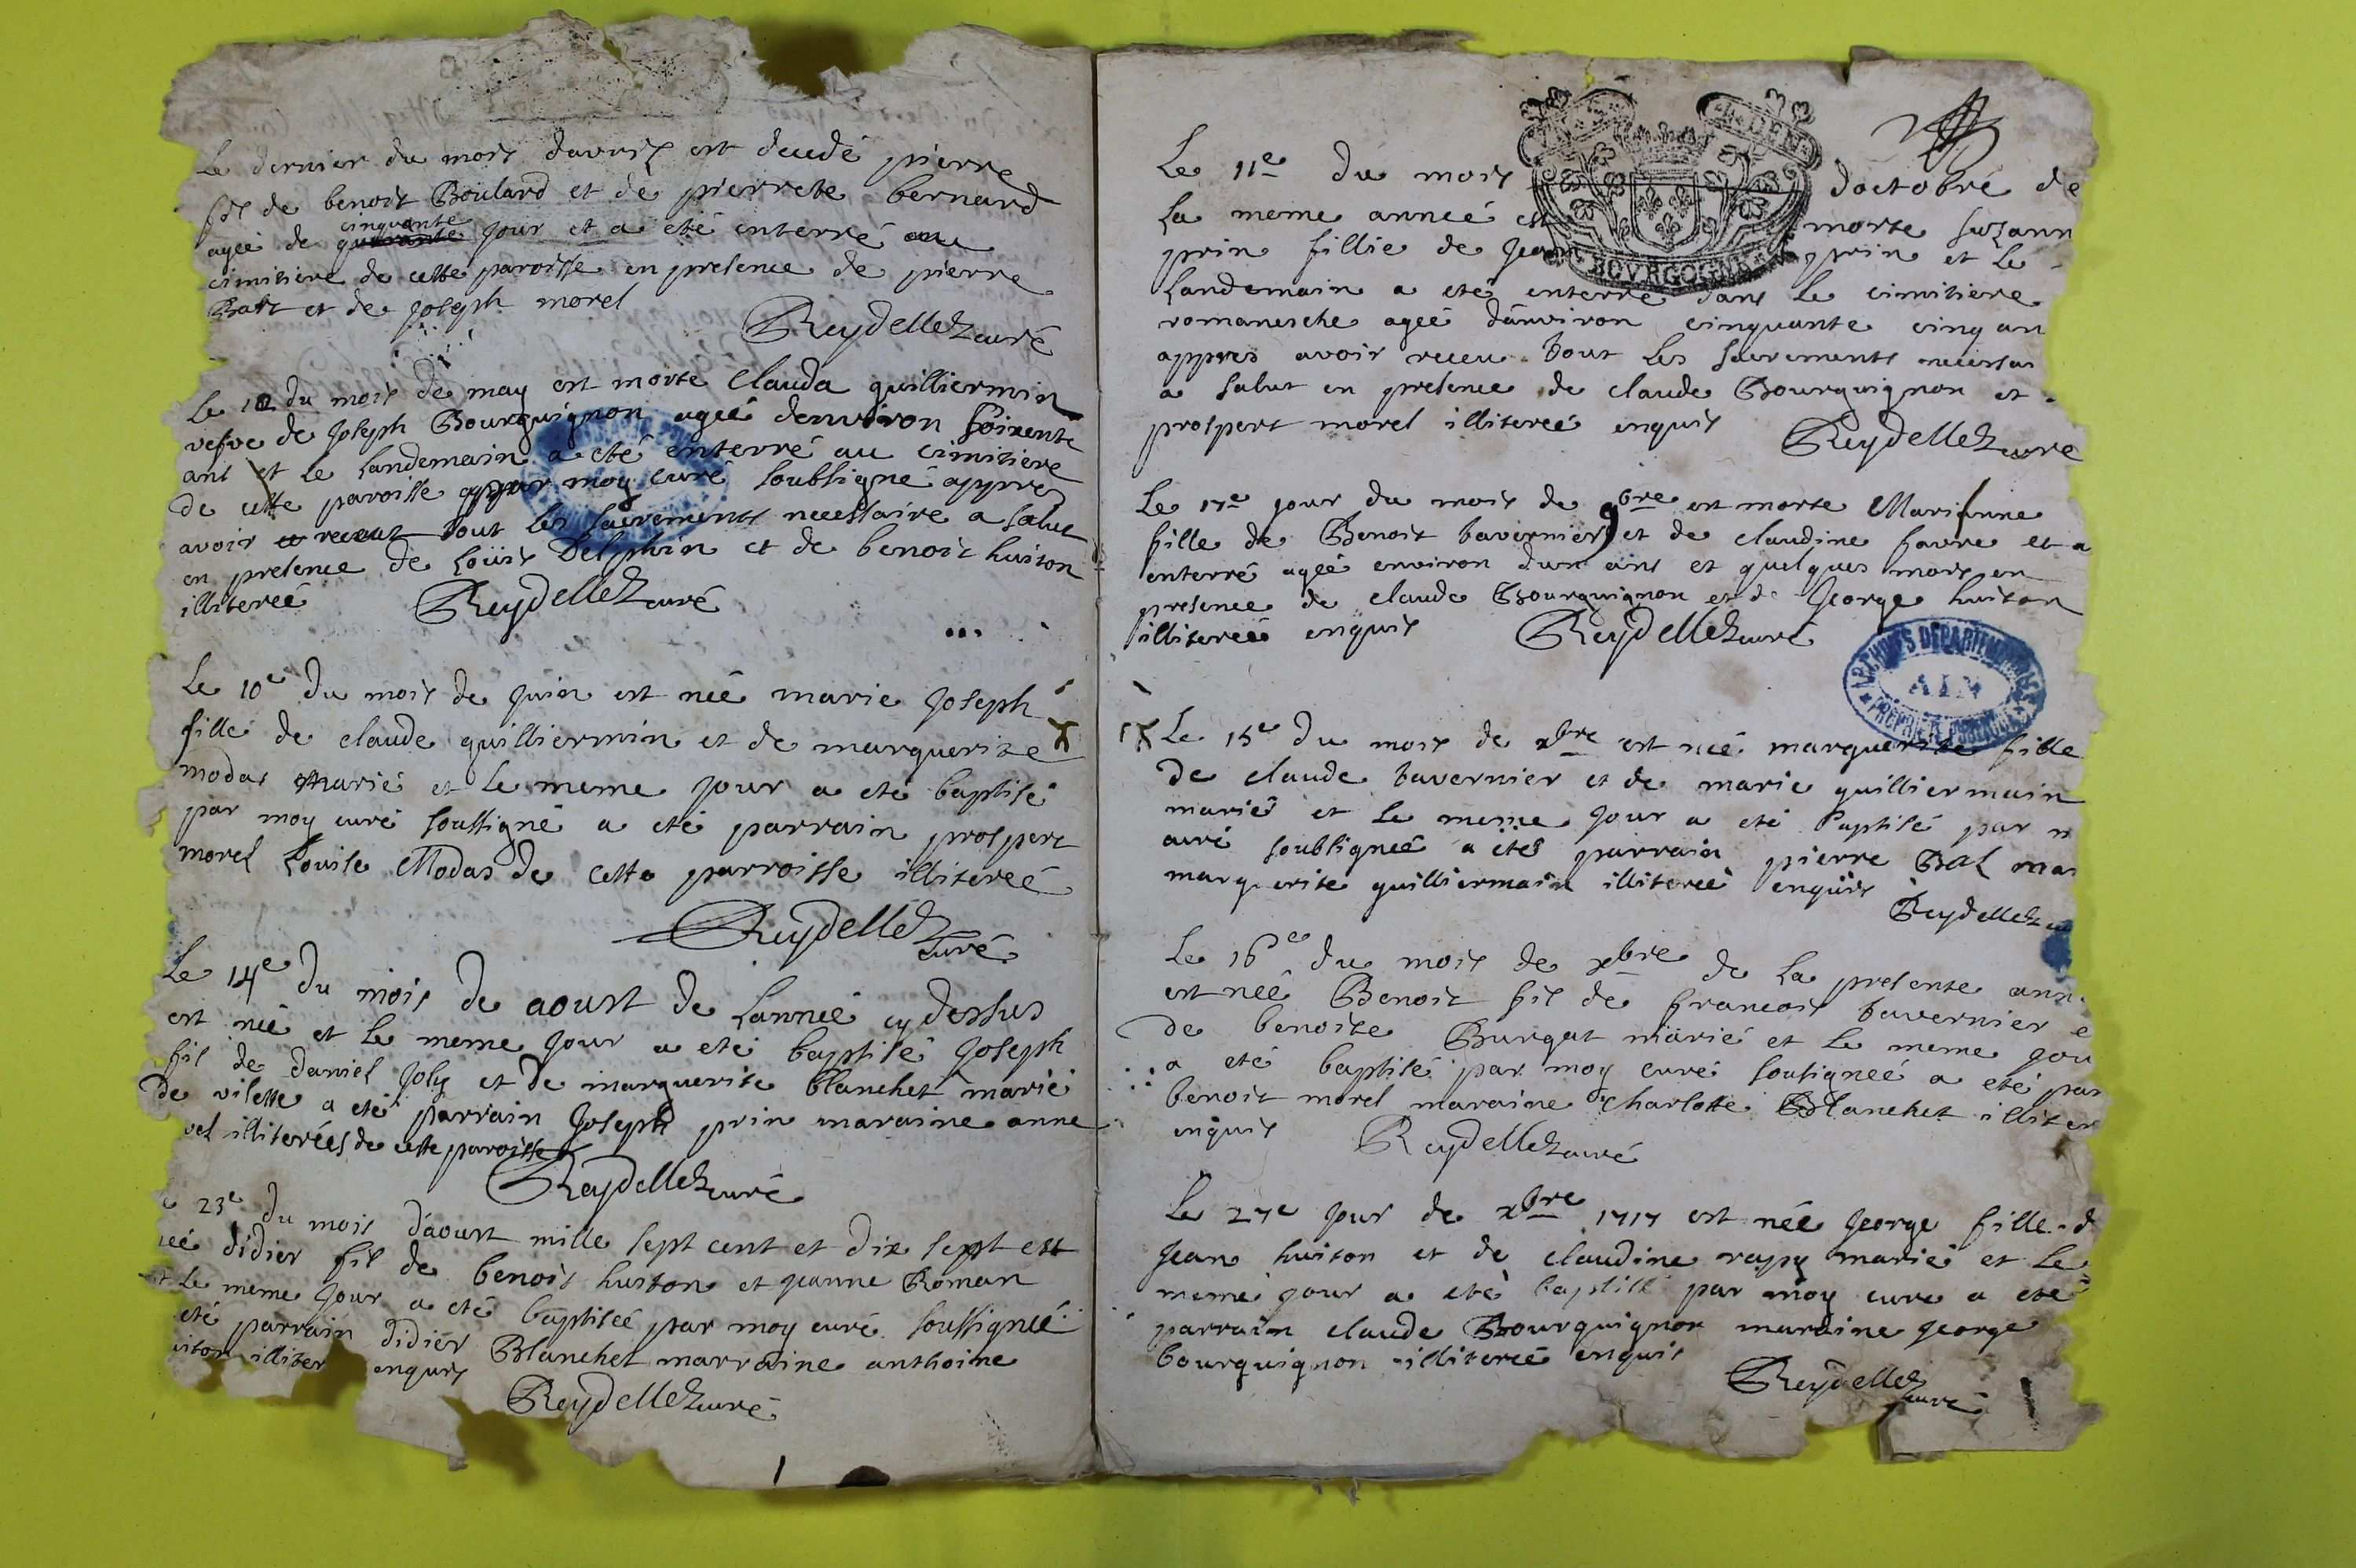 Le dernier du mois davril est decedé pierre
fil de benoit Boulard et de pierrete bernard
cinquante
ageé de quarante jour et a eté enterré au
cimitiere de cette paroisse en presence de pierre
Bal et de Joseph morel
Reydellet curé
Le 12 du mois de may est morte Clauda guilliermin
vefve de Joseph Bourguignon ageé denviron soixente
ans et le landemain a eté enterré au cimitiere
de cette paroisse par moy curé soubsigné appres
avoir receut tout les sacrements necessaire a salut
en presence de Loüis Delphin et de benoit huiton
illitereé
Reydellet curé
Le 10e du mois de juin est neé marie Joseph
fille de claude guilliermin et de marguerite
modas marié et le meme jour a eté baptisé
par moy curé soussigné a eté parrain prospert
morel Louise Modas de cette parroisse illitereé
Reydellet
curé
Le 14e du mois de aoust de Lanneé cy dessus
est neé et le meme jour a eté baptisé Joseph
fil de Daniel Joly et de marguerite blanchet marié
de vilette a eté parrain Joseph prin maraine anne
vel illitereés de cette paroisse
Reydellet curé
23e du mois d'aoust mille sept cent et dix sept est
neé didier fil de benoit huiton et jeanne Roman
et le meme jour a eté baptiseé par moy curé soussigneé
eté parrain didier Blanchet marraine anthoine
uiton illiter enquis
Reydellet curé
BOURGOGNE
4. DEN.
Le 11e du mois doctobre de
La meme anneé est morte suzann
prin fillie de Jean prin et le
Landemain a eté enterré dans le cimitiere
romanesche ageé d'anviron cinquante cinq an
appres avoir receu tout les sacrements necessai
a salut en presence de claude Bourguignon et
prospert morel illitereé enquis
Reydellet curé
Le 17e jour du mois de 9bre est morte Marianne
fille de Benoit tavernier et de claudine favre et a
enterré ageé environ dun ans et quelques mois en
presence de claude Bourguignon et de George huiton
illitereé enquis Reydellet curé
ARCHIVES DEPARTEMENTALES
AIN
PROPRIETE PUBLIQUE
Le 15e du mois de xbre est neé marguerite fille
de claude tavernier et de marie guilliermain
marieé et le meme jour a eté baptisé par m
curé soubsigneé a eté parrain pierre Bal mar
marguerite guilliermain illitereé enquis
Reydellet cu
Le 16e du mois de xbre de La presente ann
est neé Benoit fil de francois tavernier e
de benoite Burgat marié et le meme jou
a eté baptisé par moy cureé sousigneé a eté par
benoit morel maraine Charlotte Blanchet illiter
enquis Reydellet curé
Le 27e jour de xbre 1717 est neé George fille d
Jean huiton et de claudine rapy marieé et le
meme jour a eté baptisé par moy cure a eté
parrain claude Bourguignon maraine george
bourguignon illitereé enquis
Reydellet
curé